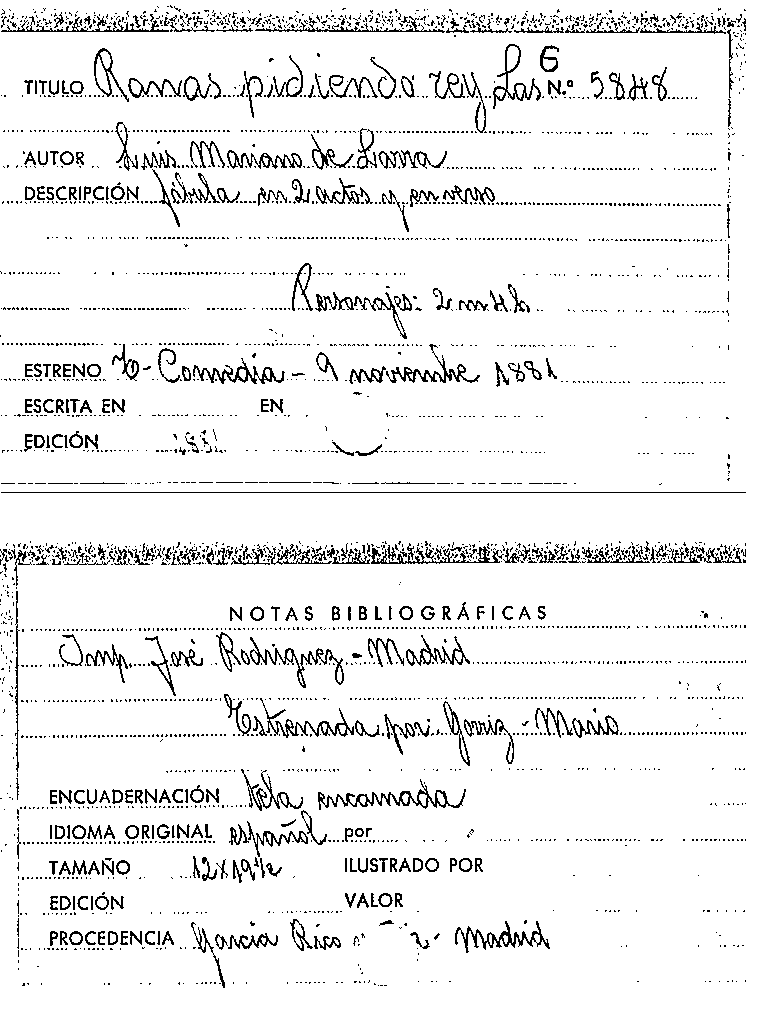 G
TITULO Ranas pidiendo rey Las N.º 5848
AUTOR Luis Mariano de Larra
DESCRIPCIÓN fábula en 2 actos y en verso
Personajes: 2 m 4 h
ESTRENO To- Comedia - 9 noviembre 1881
ESCRITA EN EN
EDICIÓN 1881
NOTAS BIBLIOGRÁFICAS
Imp. José Rodriguez - Madrid
Estrenada por: Gorriz - Mario
ENCUADERNACIÓN tela encarnada
IDIOMA ORIGINAL español por
TAMAÑO 12x19½ ILUSTRADO POR
EDICIÓN VALOR
PROCEDENCIA García Rico - Madrid